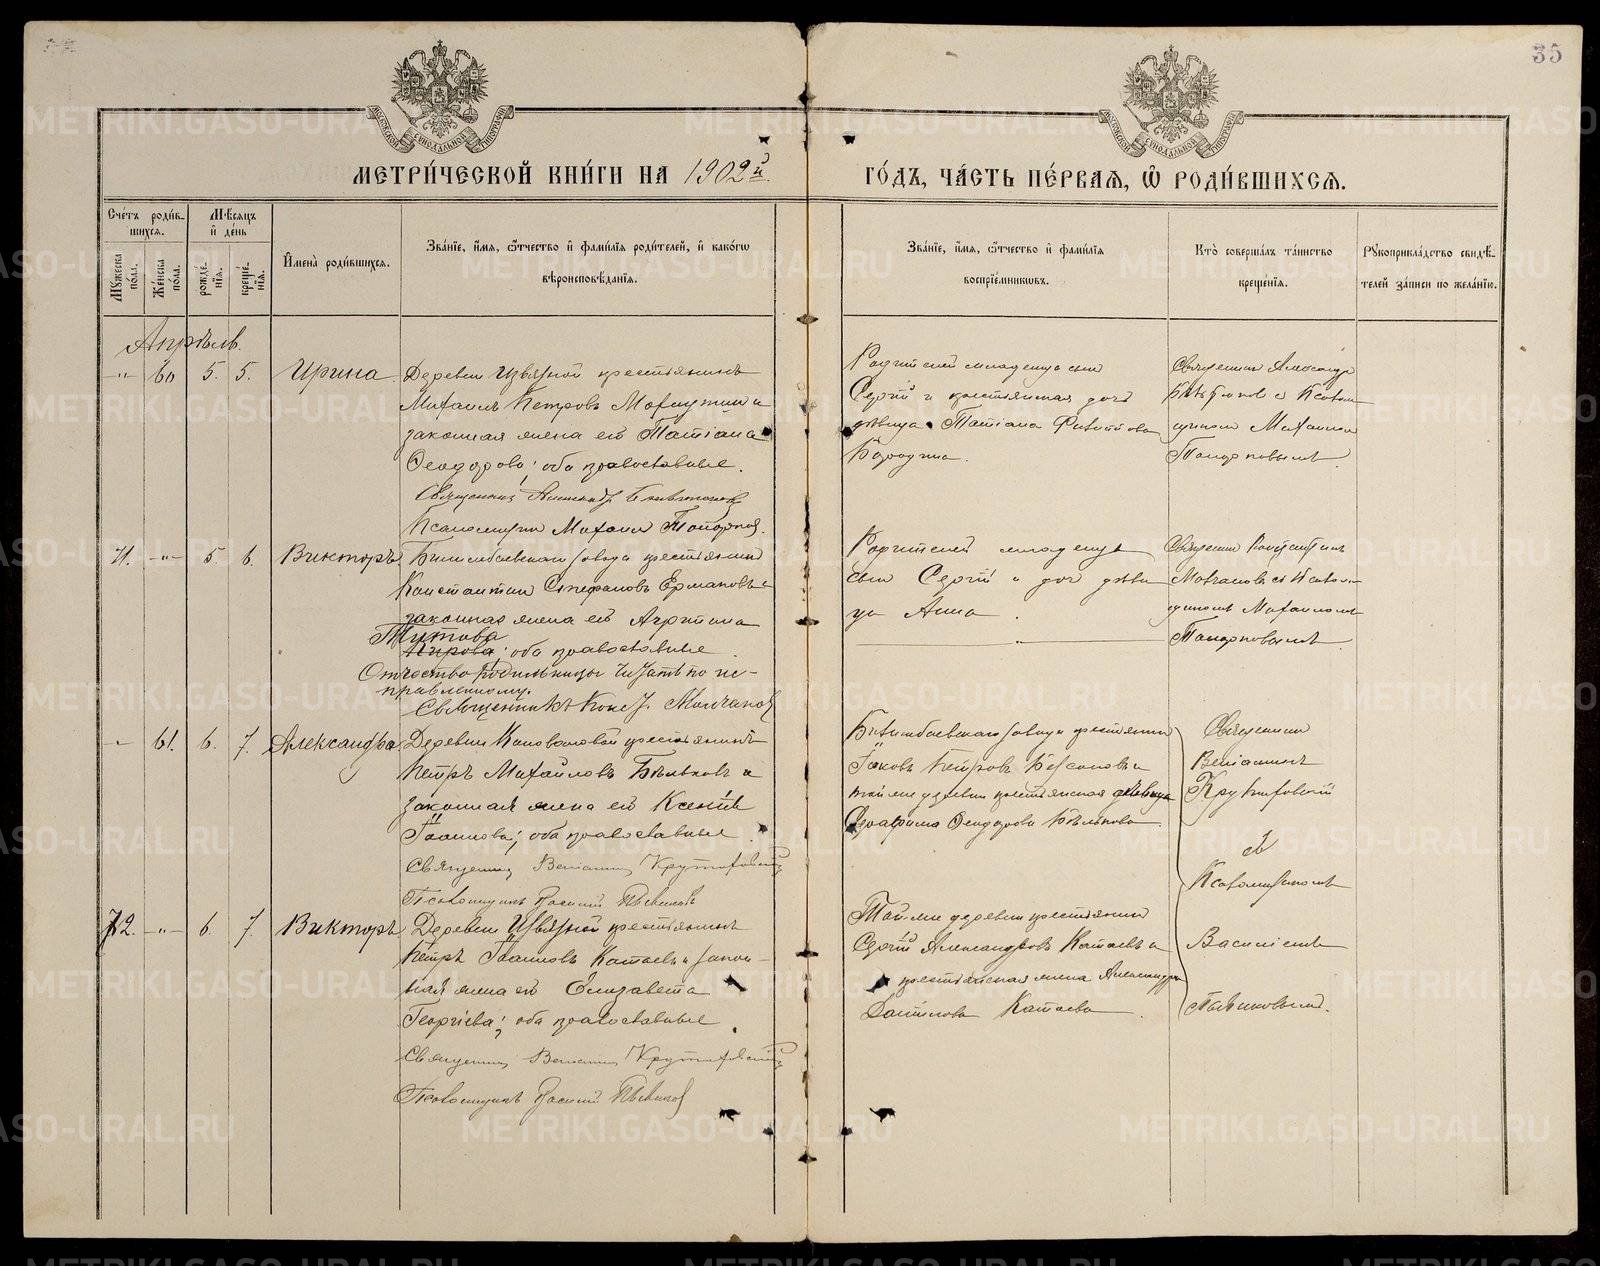 35
МОСКОВСКОЙ СѴНОДАЛЬНОЙ ТИПОГРАФІИ
МОСКОВСКОЙ СѴНОДАЛЬНОЙ ТИПОГРАФІИ
МЕТРИ́ЧЕСКОЙ КНИ́ГИ НА 1902й
ГО́ДЪ, ЧА́СТЬ ПЕ́РВАЯ, Ѽ РОДИ́ВШИХСЯ.
Сче́тъ роди́в-
шихся.
Мꙋ́жеска по́ла.
Же́нска по́ла.
Мѣ́сяцъ
и҆ де́нь
рожде́-
нїя.
креще́-
нїя.
И҆мена̀ роди́вшихся.
Зва́нїе, и҆́мя, ѻ҆́тчество и҆ фами́лїя роди́телей, и҆ како́гѡ
вѣроисповѣ́данїя.
Зва́нїе, и҆́мя, ѻ҆́тчество и҆ фами́лїя
воспрїе́мникѡвъ.
Кто̀ соверша́лъ та́инство
креще́нїя.
Рꙋкоприкла́дство свидѣ́-
телей за́писи по жела́нїю.
Апрѣль.
-"- 60 5. 5. Ирина.
Деревни Извязной крестьянинъ
Михаилъ Петровъ и
законная жена его Татіана
Ѳеодорова; оба православные.
Священникъ Александръ
Псаломщикъ Михаилъ Топорковъ.
Родителей младенца сынъ
Сергій и крестьянская дочь
дѣвица Татіана
Бородина.
Священникъ Александръ
съ Псалом-
щикомъ Михаиломъ
Топорковымъ.
71. -"- 5. 6. Викторъ
Билимбаевскаго завода крестьянинъ
Константинъ Стефановъ Ермаковъ и
законная жена его Агрипина
Титова
оба православные.
Отчество родительницы читать по ис-
правленному.
Священникъ Конст. Молчановъ
Родителей младенца
сынъ Сергій и дочь дѣви-
ца Анна.
Священникъ Константинъ
Молчановъ съ Псалом-
щикомъ Михаиломъ
Топорковымъ.
-"- 61. 6. 7. Александра
Деревни Коноваловой крестьянинъ
Петръ Михайловъ Бѣльковъ и
законная жена его Ксенія
Іоаннова; оба православные
Священникъ Веніаминъ Крутиховскій
Псаломщикъ Василій Пьянковъ
Билимбаевскаго завода крестьянинъ
Іаковъ Петровъ и
той-же деревни крестьянская дѣвица
Серафима Ѳеодорова Бѣлькова.
Священникъ
Веніаминъ
Крутиховскій
съ
Псаломщикомъ
Василіемъ
Пьянковымъ.
72. -"- 6. 7. Викторъ
Деревни Извязной крестьянинъ
Петръ Іоанновъ Катаевъ и закон-
ная жена его Елизавета
Георгіева; оба православные.
Священникъ Веніаминъ Крутиховскій
Псаломщикъ Василій Пьянковъ
Той-же деревни крестьянинъ
Сергій Александровъ Катаевъ и
крестьянская жена Александра
Даніилова Катаева.
METRIKI.GASO-URAL.RU